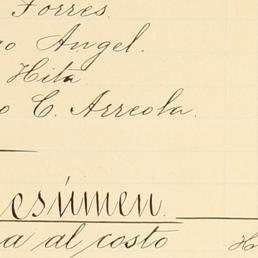 Torres.
o Angel.
Hita
o C. Arreola.
esúmen.
a al costo